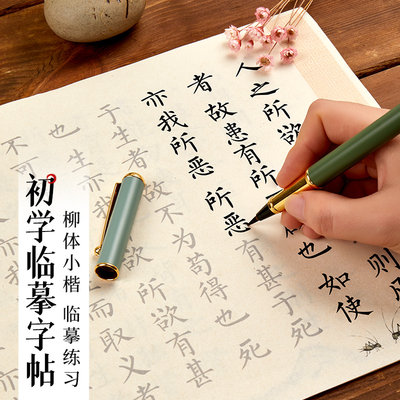 初学临摹字帖
柳体小楷 临摹练习
人之所欲
则
者故患有所
也如使
亦我所恶所恶有甚于死
于生者故不为苟得也死
也生亦我
所欲有甚
不可
而取义者